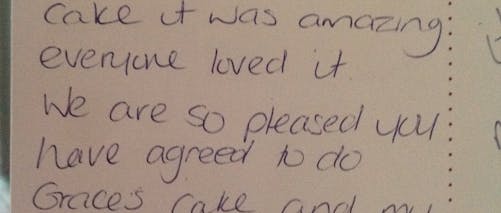 Cake it was amazing
everyone loved it
We are so pleased you
have agreed to do
Graces cake and my